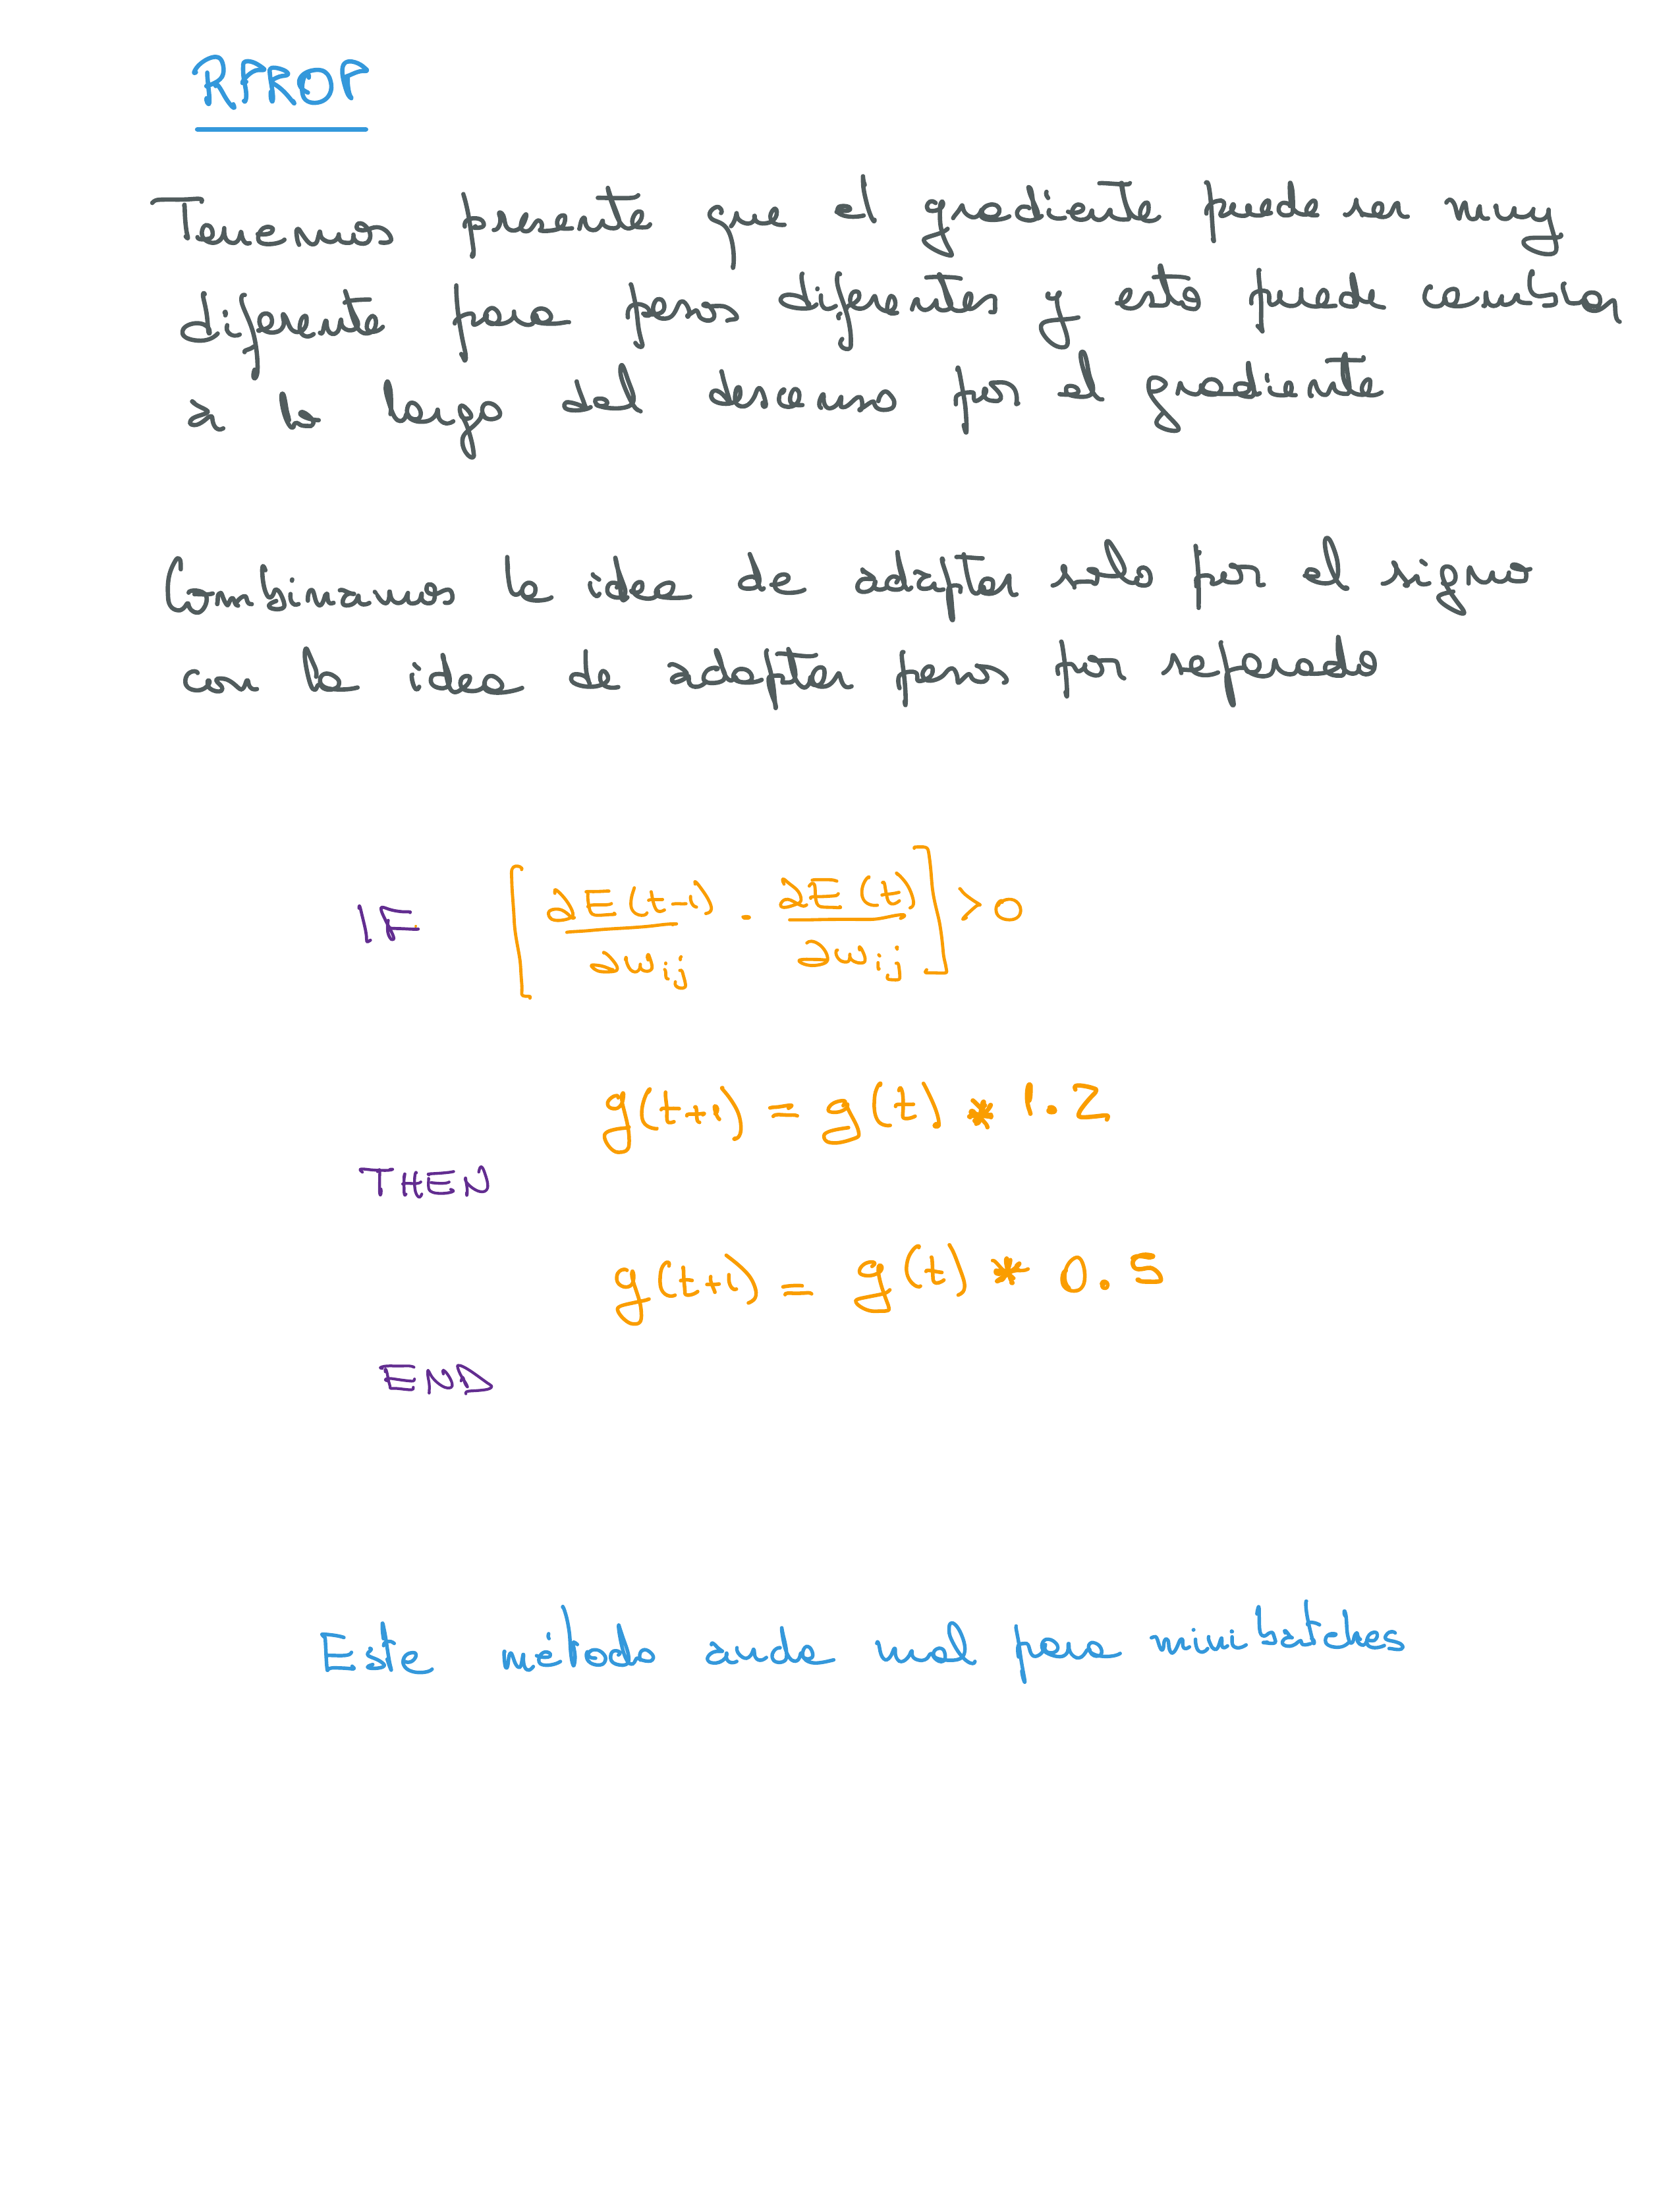 RPROP
Tenemos presente que el gradiente puede ser muy
diferente para pesos diferentes y esto puede cambiar
a lo largo del descenso por el gradiente
Combinamos la idea de adaptar solo por el signo
con la idea de adaptar pesos por separado
IF [∂E(t-1)/∂w_ij · ∂E(t)/∂w_ij] > 0
g(t+1) = g(t) * 1.2
THEN
g(t+1) = g(t) * 0.5
END
Este método anda mal para minibatches